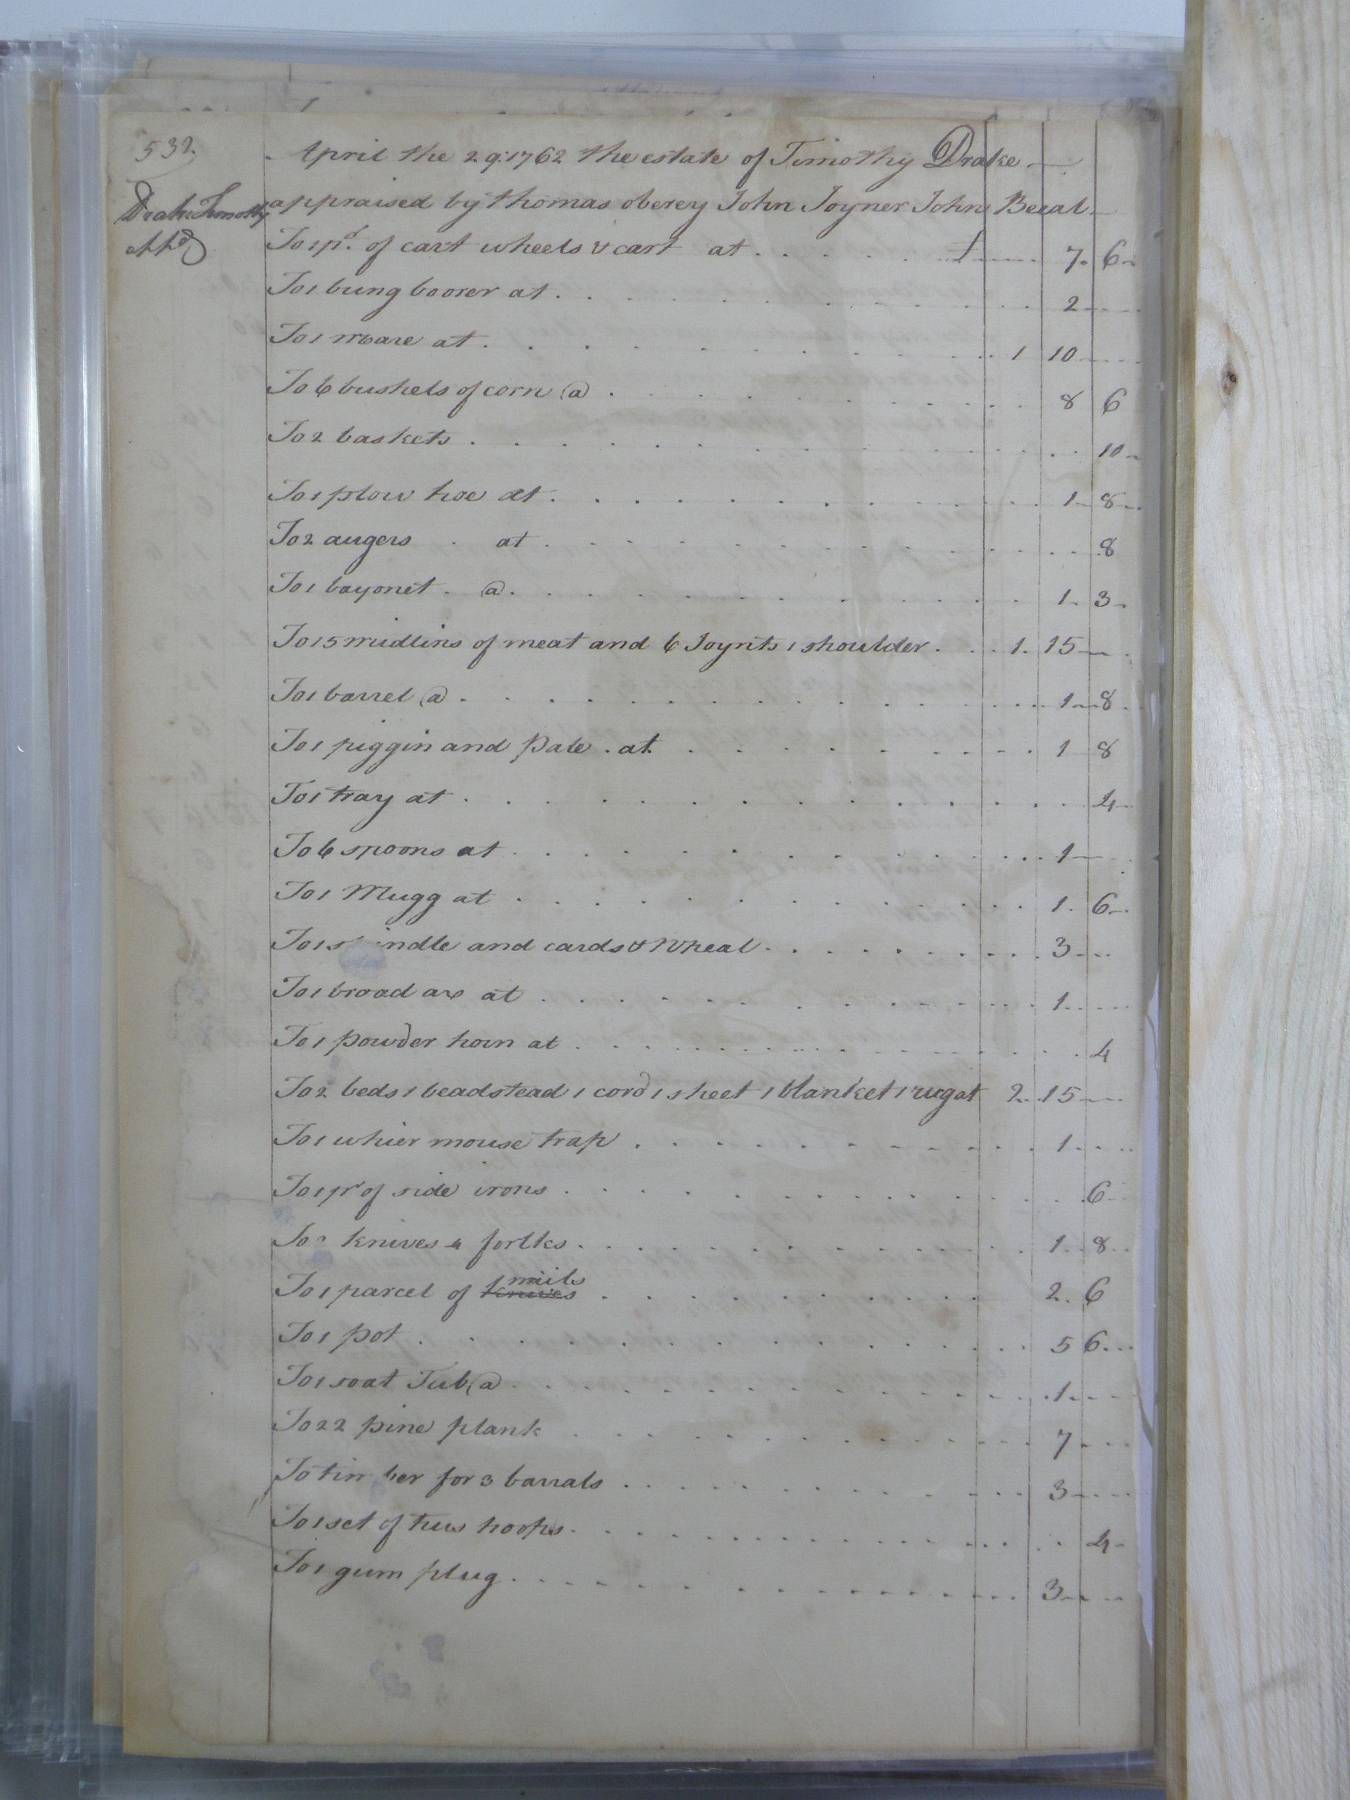 532.
April the 29. 1762 the estate of Timothy Drake
Drake Timothy
appraised by thomas oberey John Joyner John Beeal
To 1 pr. of cart wheels & cart at 7. 6
To 1 bung boorer at 2
To 1 mare at 1 10
To 6 bushels of corn @ 8 6
To 2 baskets 10
To 1 plow hoe at 1 8
To 2 augers at 8
To 1 bayonet @ 1 3
To 15 midlins of meat and 6 Joynts 1 shoulder 1 15
To 1 barrel @ 1 8
To 1 piggin and Pale at 1 8
To 1 tray at 4
To 6 spoons at 1
To 1 Mugg at 1 6
To 1 spindle and cards & Wheal 3
To 1 broad ax at 1
To 1 powder horn at 4
To 2 beds 1 beadstead 1 cord 1 sheet 1 blanket 1 rug at 2 15
To 1 whier mouse trap 1
To 1 pr of side irons 6
To knives & forlks 1 8
To 1 parcel of knives nails 2 6
To 1 pot 5 6
To 1 soat Tub @ 1
To 22 pine plank 7
To timber for 3 barrals 3
To 1 set of tus hoops 4
To 1 gum plug 3